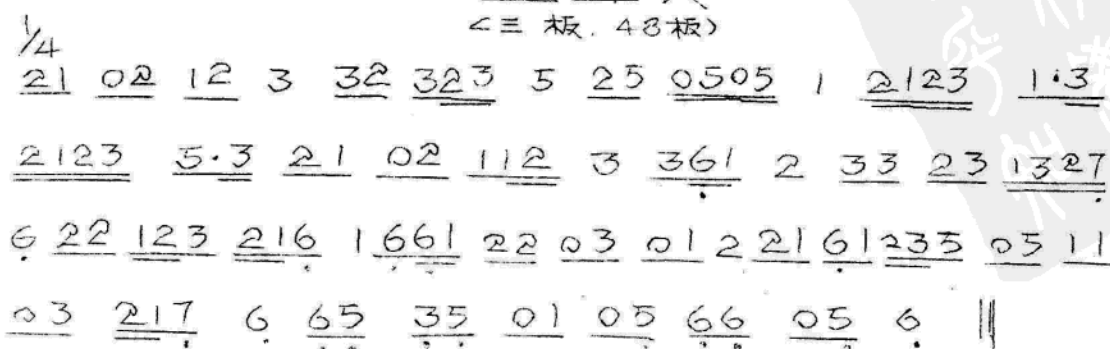 <三板.48板>
1/4
21 02 12 3 32 323 5 25 0505 1 2123 1·3
2123 5·3 21 02 112 3 361 2 33 23 1327
6 22 123 216 1 661 22 03 01 2 21 61 235 05 11
03 217 6 65 35 01 05 66 05 6 ‖